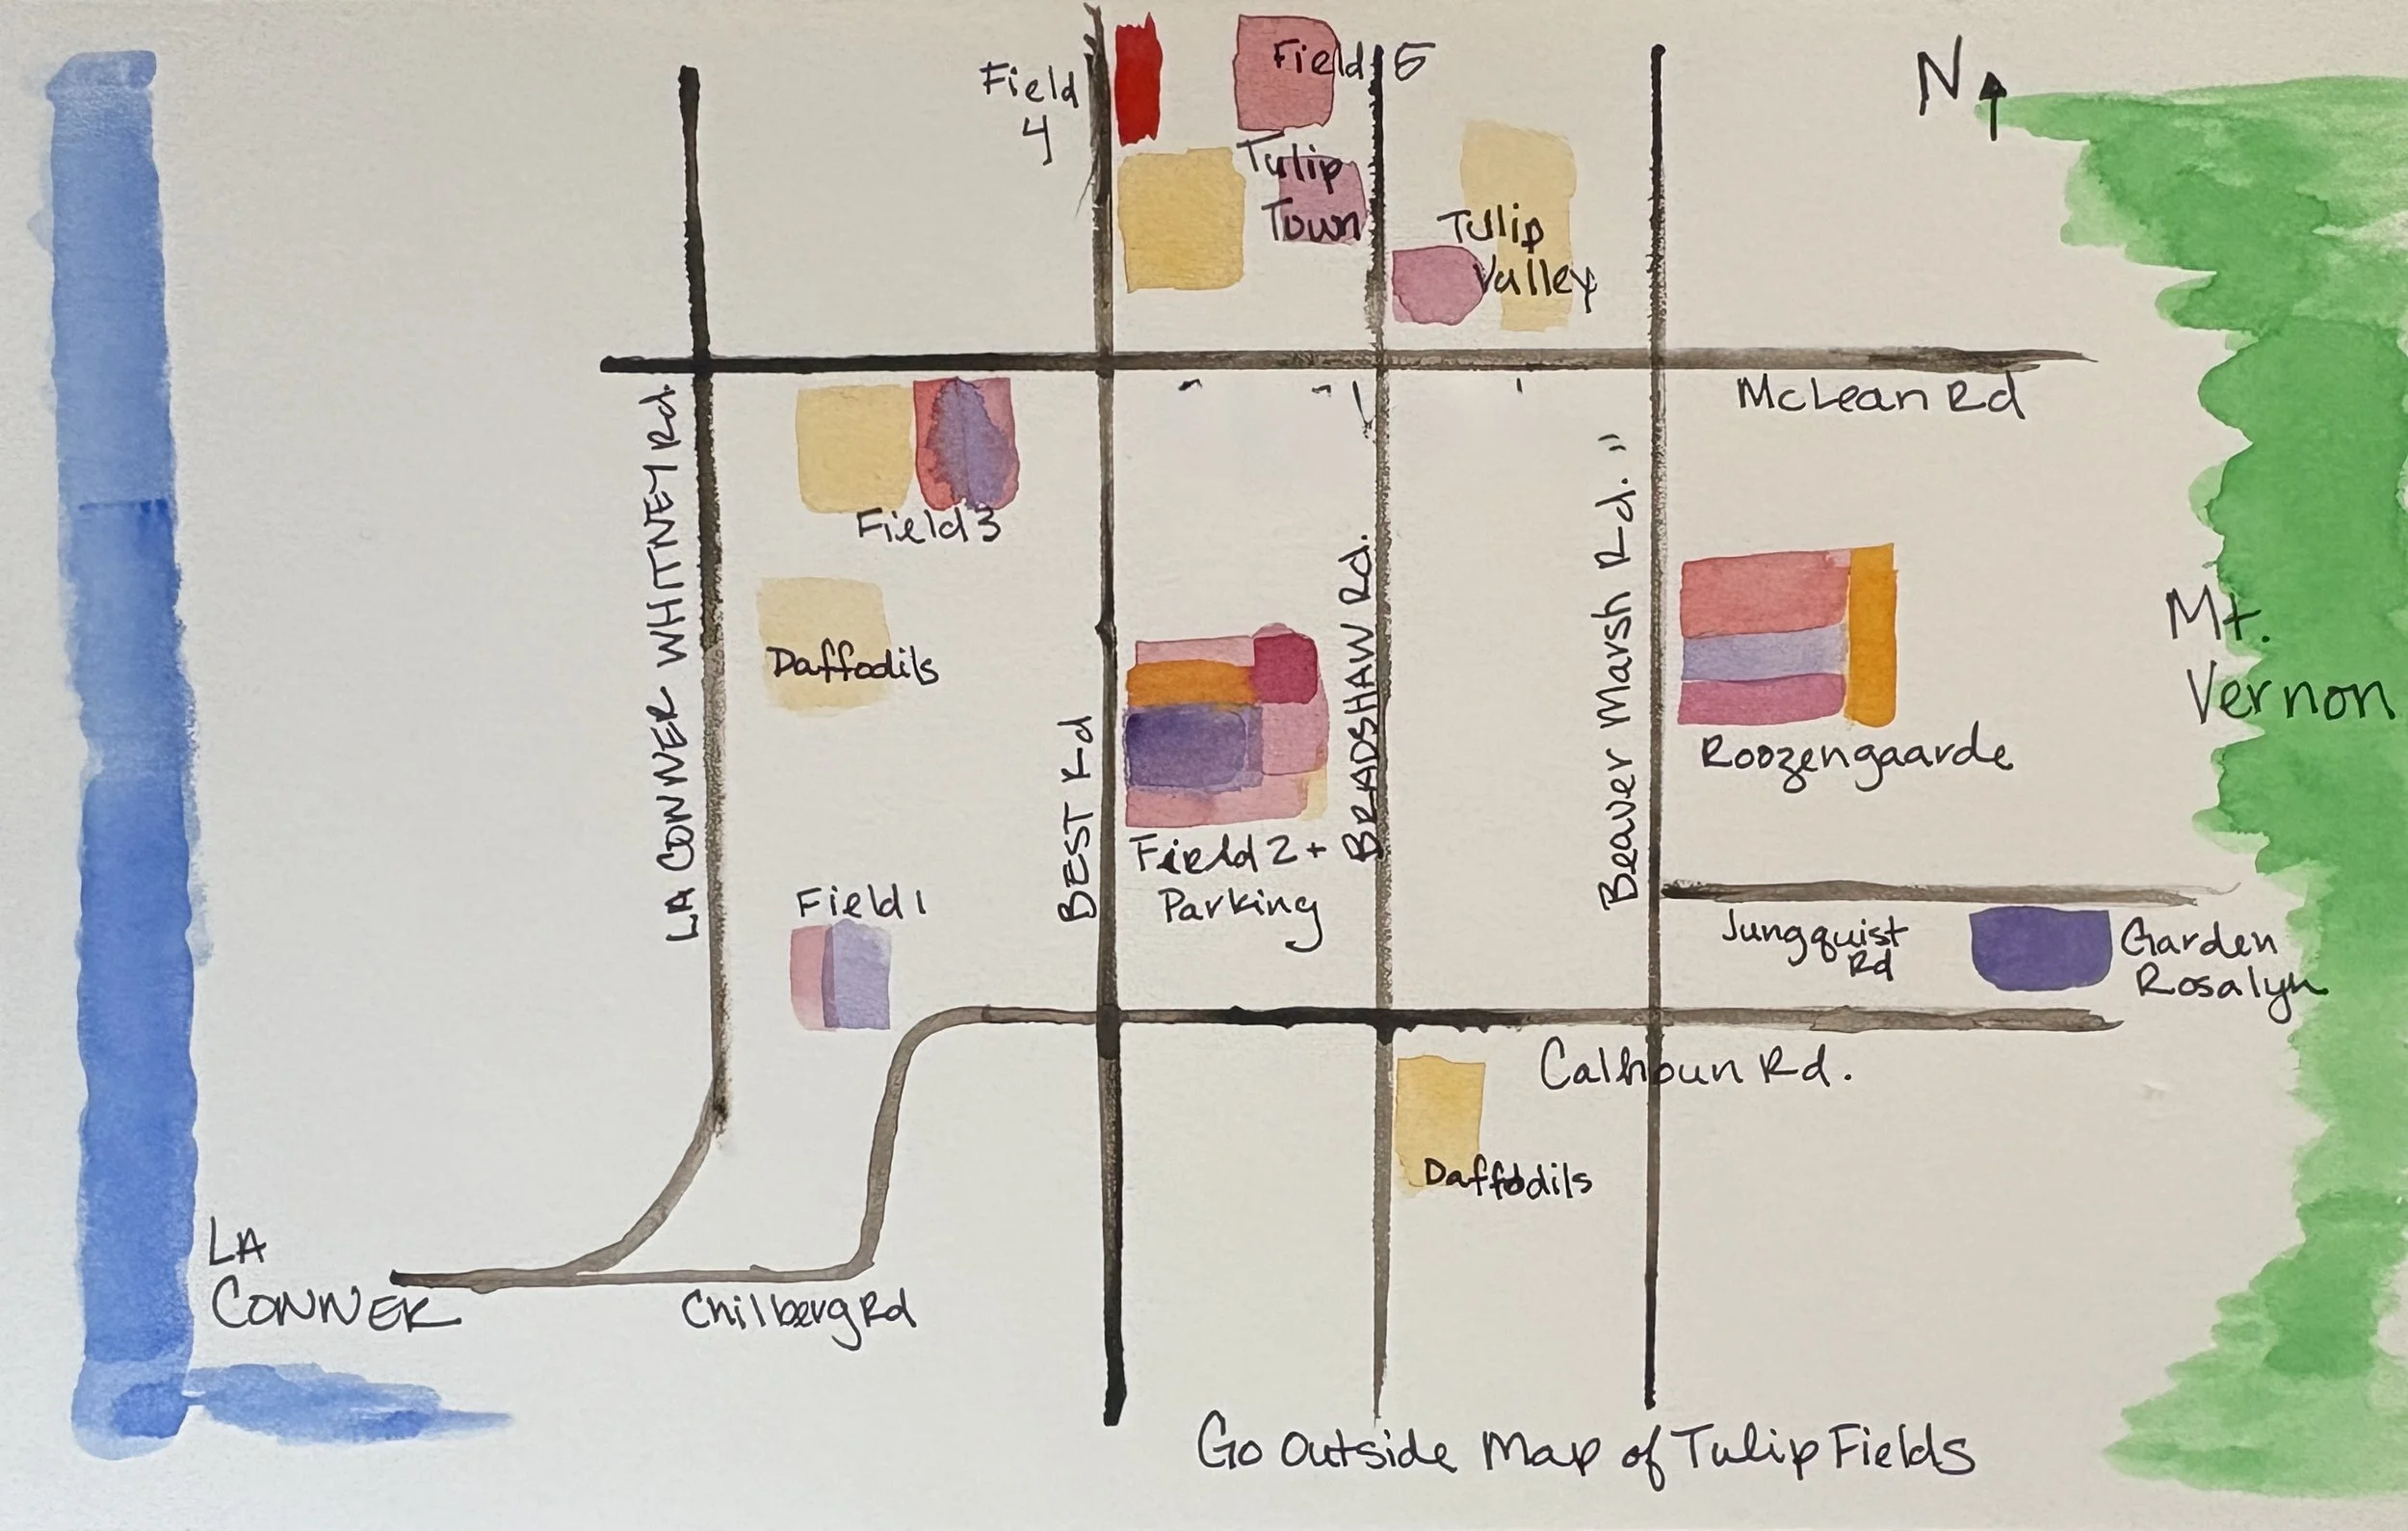 Field 5
N
Field
4
Tulip
Town
Tulip
Valley
McLean Rd
LA CONNER WHITNEY Rd.
Field 3
Daffodils
BEST Rd
BRADSHAW Rd.
Beaver Marsh Rd.
Mt.
Vernon
Roozengaarde
Field 2 +
Parking
Field 1
Jungquist
Rd
Garden
Rosalyn
Calhoun Rd.
Daffodils
LA
CONNER
Chilberg Rd
Go Outside Map of Tulip Fields